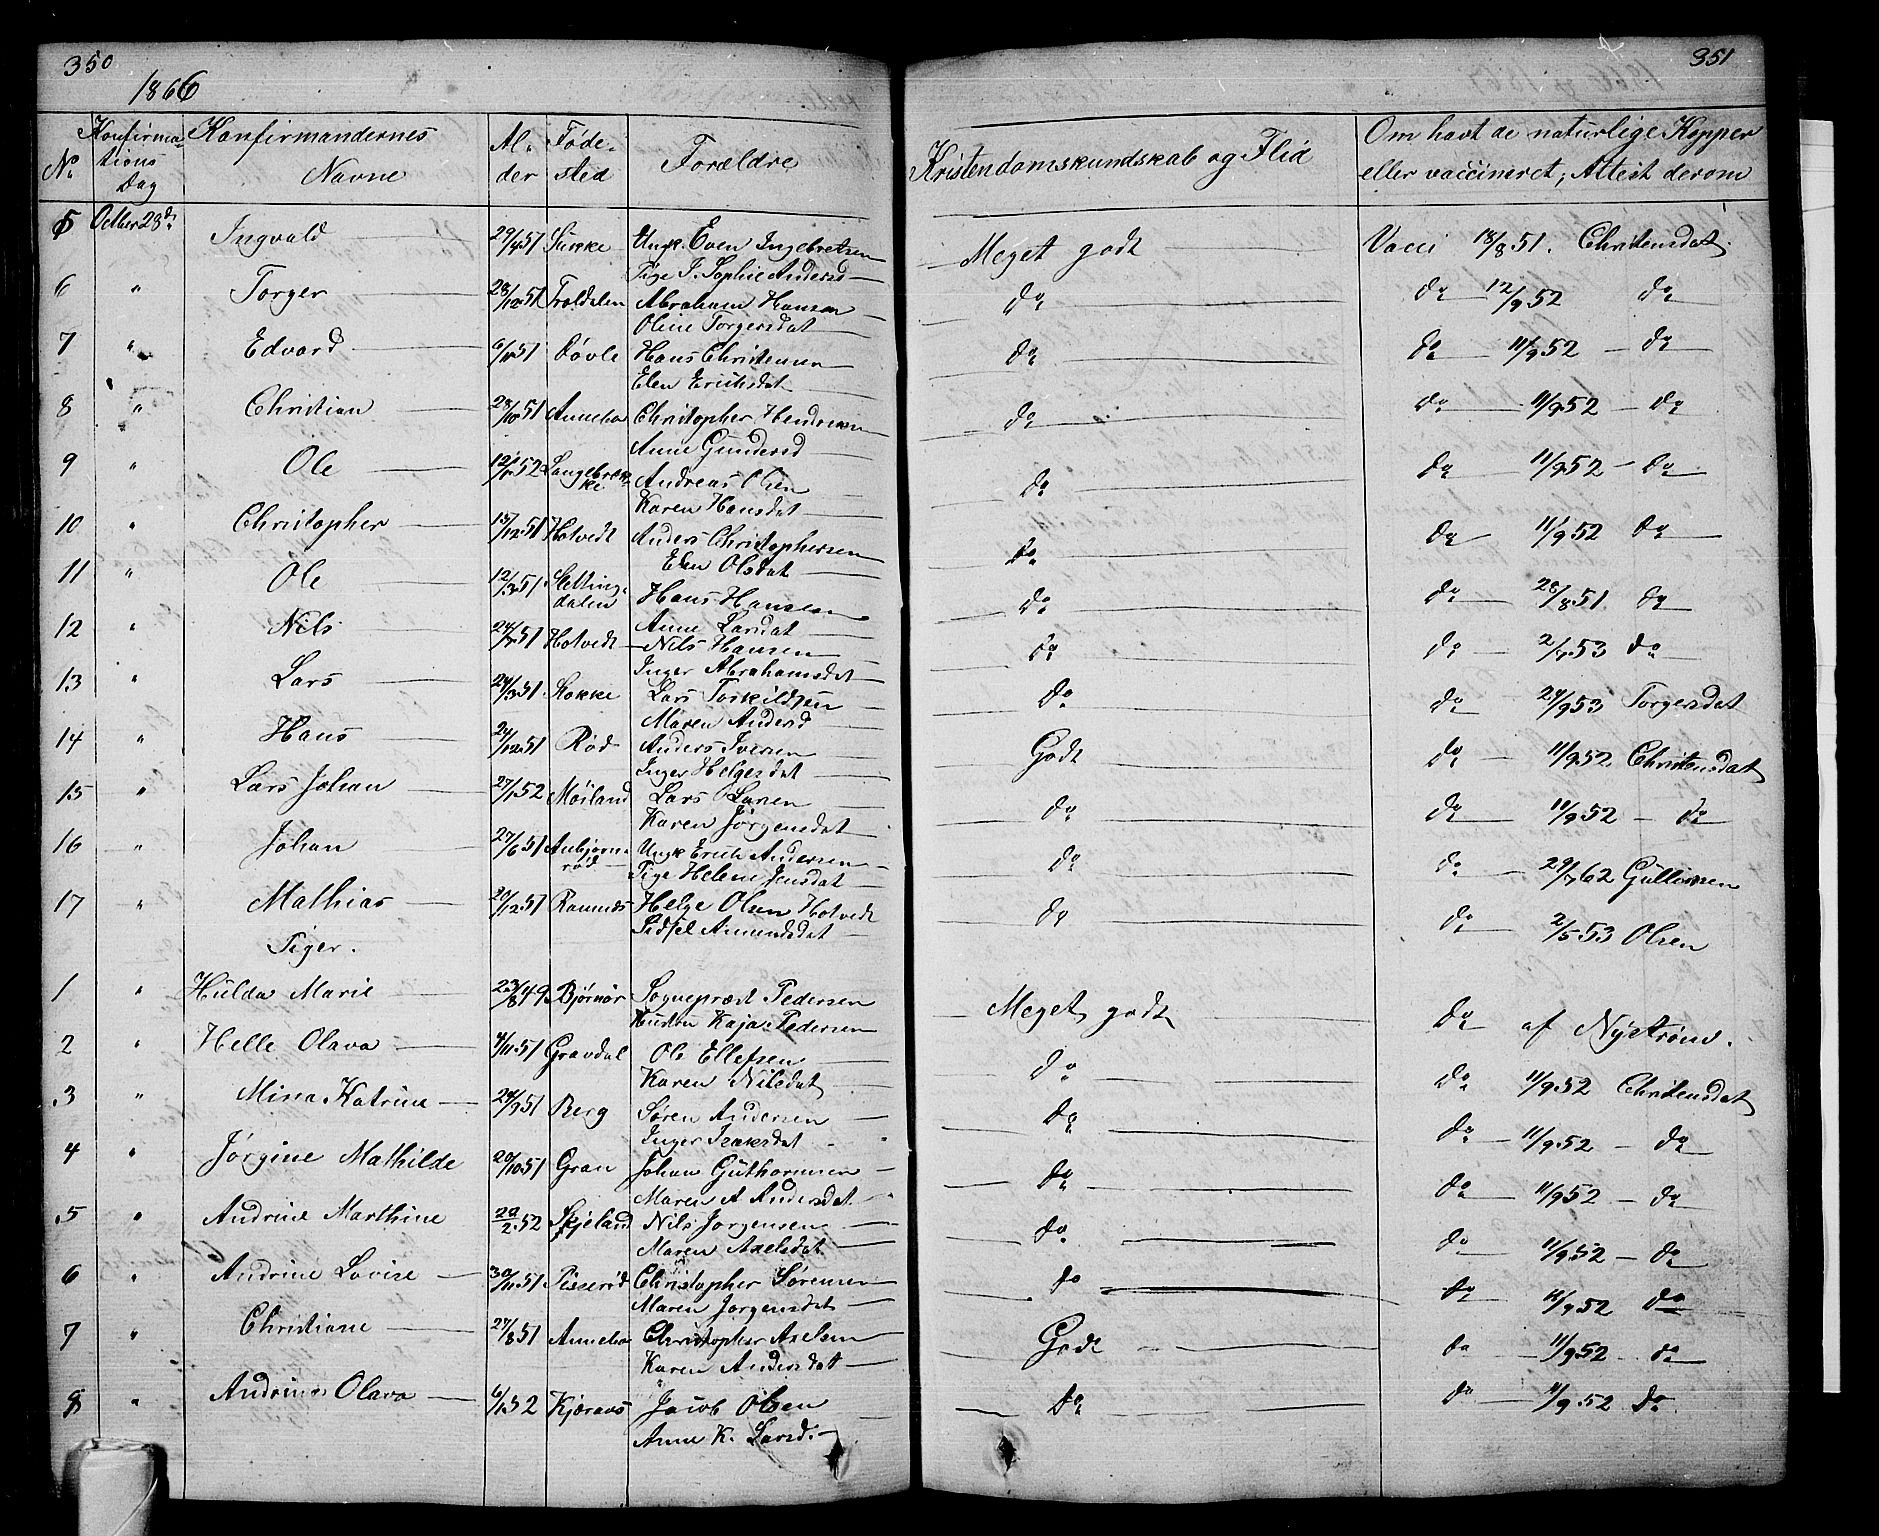 350
1866
No. Konfirmations Dag Konfirmandernes Navne Alder Fødested Forældre
5 Octber 28de Ingvald 29/4 51 Ungk. Even Ingebretsen
Pige J. Sophie Andersd
6 " Torger 28/10 51 Troldalen Abraham Hansen
Oline Torgersdat
7 " Edvard 51 Døvle Hans Christensen
Elen Eriksdat
8 " Christian 28/10 51 Anneboe Christopher
Anne Gundersd
9 " Ole 12/1 52 Langebrække Andreas Olsen
Karen Hansdat
10 " Christopher 13/12 51 Hotvedt Anders Christophersen
Elen Olsdat
11 " Ole 12/3 51 Slettingdalen Hans Hansen
Anne Larsdat
12 " Nils 24/7 51 Hotvedt Nils Hansen
Inger Abrahamsdat
13 " Lars 24/3 51 Stokke Lars Torkildsen
Maren Andersd
14 " Hans 24/12 51 Rød Anders Iversen
Inger Helgesdat
15 " Lars Johan 27/1 52 Møiland Lars Larsen
Karen Jørgensdat
16 " Johan 27/6 51 Anbjørnrød Ungk Erich Andersen
Pige Helene Jensdat
17 " Mathias 20/12 51 Ramnæs Helge Olsen Hotvedt
Sidsel Amundsdat
Piger.
1 " Hulda Marie 23/8 49 Bjørnør Sognepræst Pedersen
Hustru Kaja Pedersen
2 " Helle Olava 4/11 51 Gravdal Ole Ellefsen
Karen Nilsdat
3 " Mina Katrine 51 Berg Søren Andersen
Inger Isaksdat
4 " Jørgine Mathilde 20/10 51 Gran Johan Guthormsen
Maren A Andersdat
5 " Andrine Marthine 29/2 52 Skjeland Nils Jørgensen
Maren Axelsdat
6 " Andrine Lovise 30/11 51 Pisserød Christopher Sørensen
Maren Jørgensdat
7 " Christiane 27/8 51 Anneboe Christopher Axelsen
Karen Andersdat
8 " Andrine Olava 6/1 52 Kjæraas Jacob Olsen
Anne K. Larsd.
351
Kristendomskundskab og Flid Om havt de naturlige Kopper
eller vaccineret; Attest derom
Meget godt Vacci 18/8 51. Christensdat
do do 12/9 52 do
do do 11/9 52 do
do do 11/9 52 do
do do 11/9 52 do
do do 11/9 52 do
do do 28/8 51 do
do do 2/7 53 do
do do 24/9 53 Torgersdat
Godt do 11/9 52 Christensdat
do do 11/9 52 do
do do 29/7 62 Gulliksen
do do 2/5 53 Olsen
Meget godt do af Nystrøm.
do do 11/9 52 Christensdat
do do 11/9 52 do
do do 11/9 52 do
do do 11/9 52 do
do do 11/9 52 do
Godt do 11/9 52 do
do do 11/9 52 do